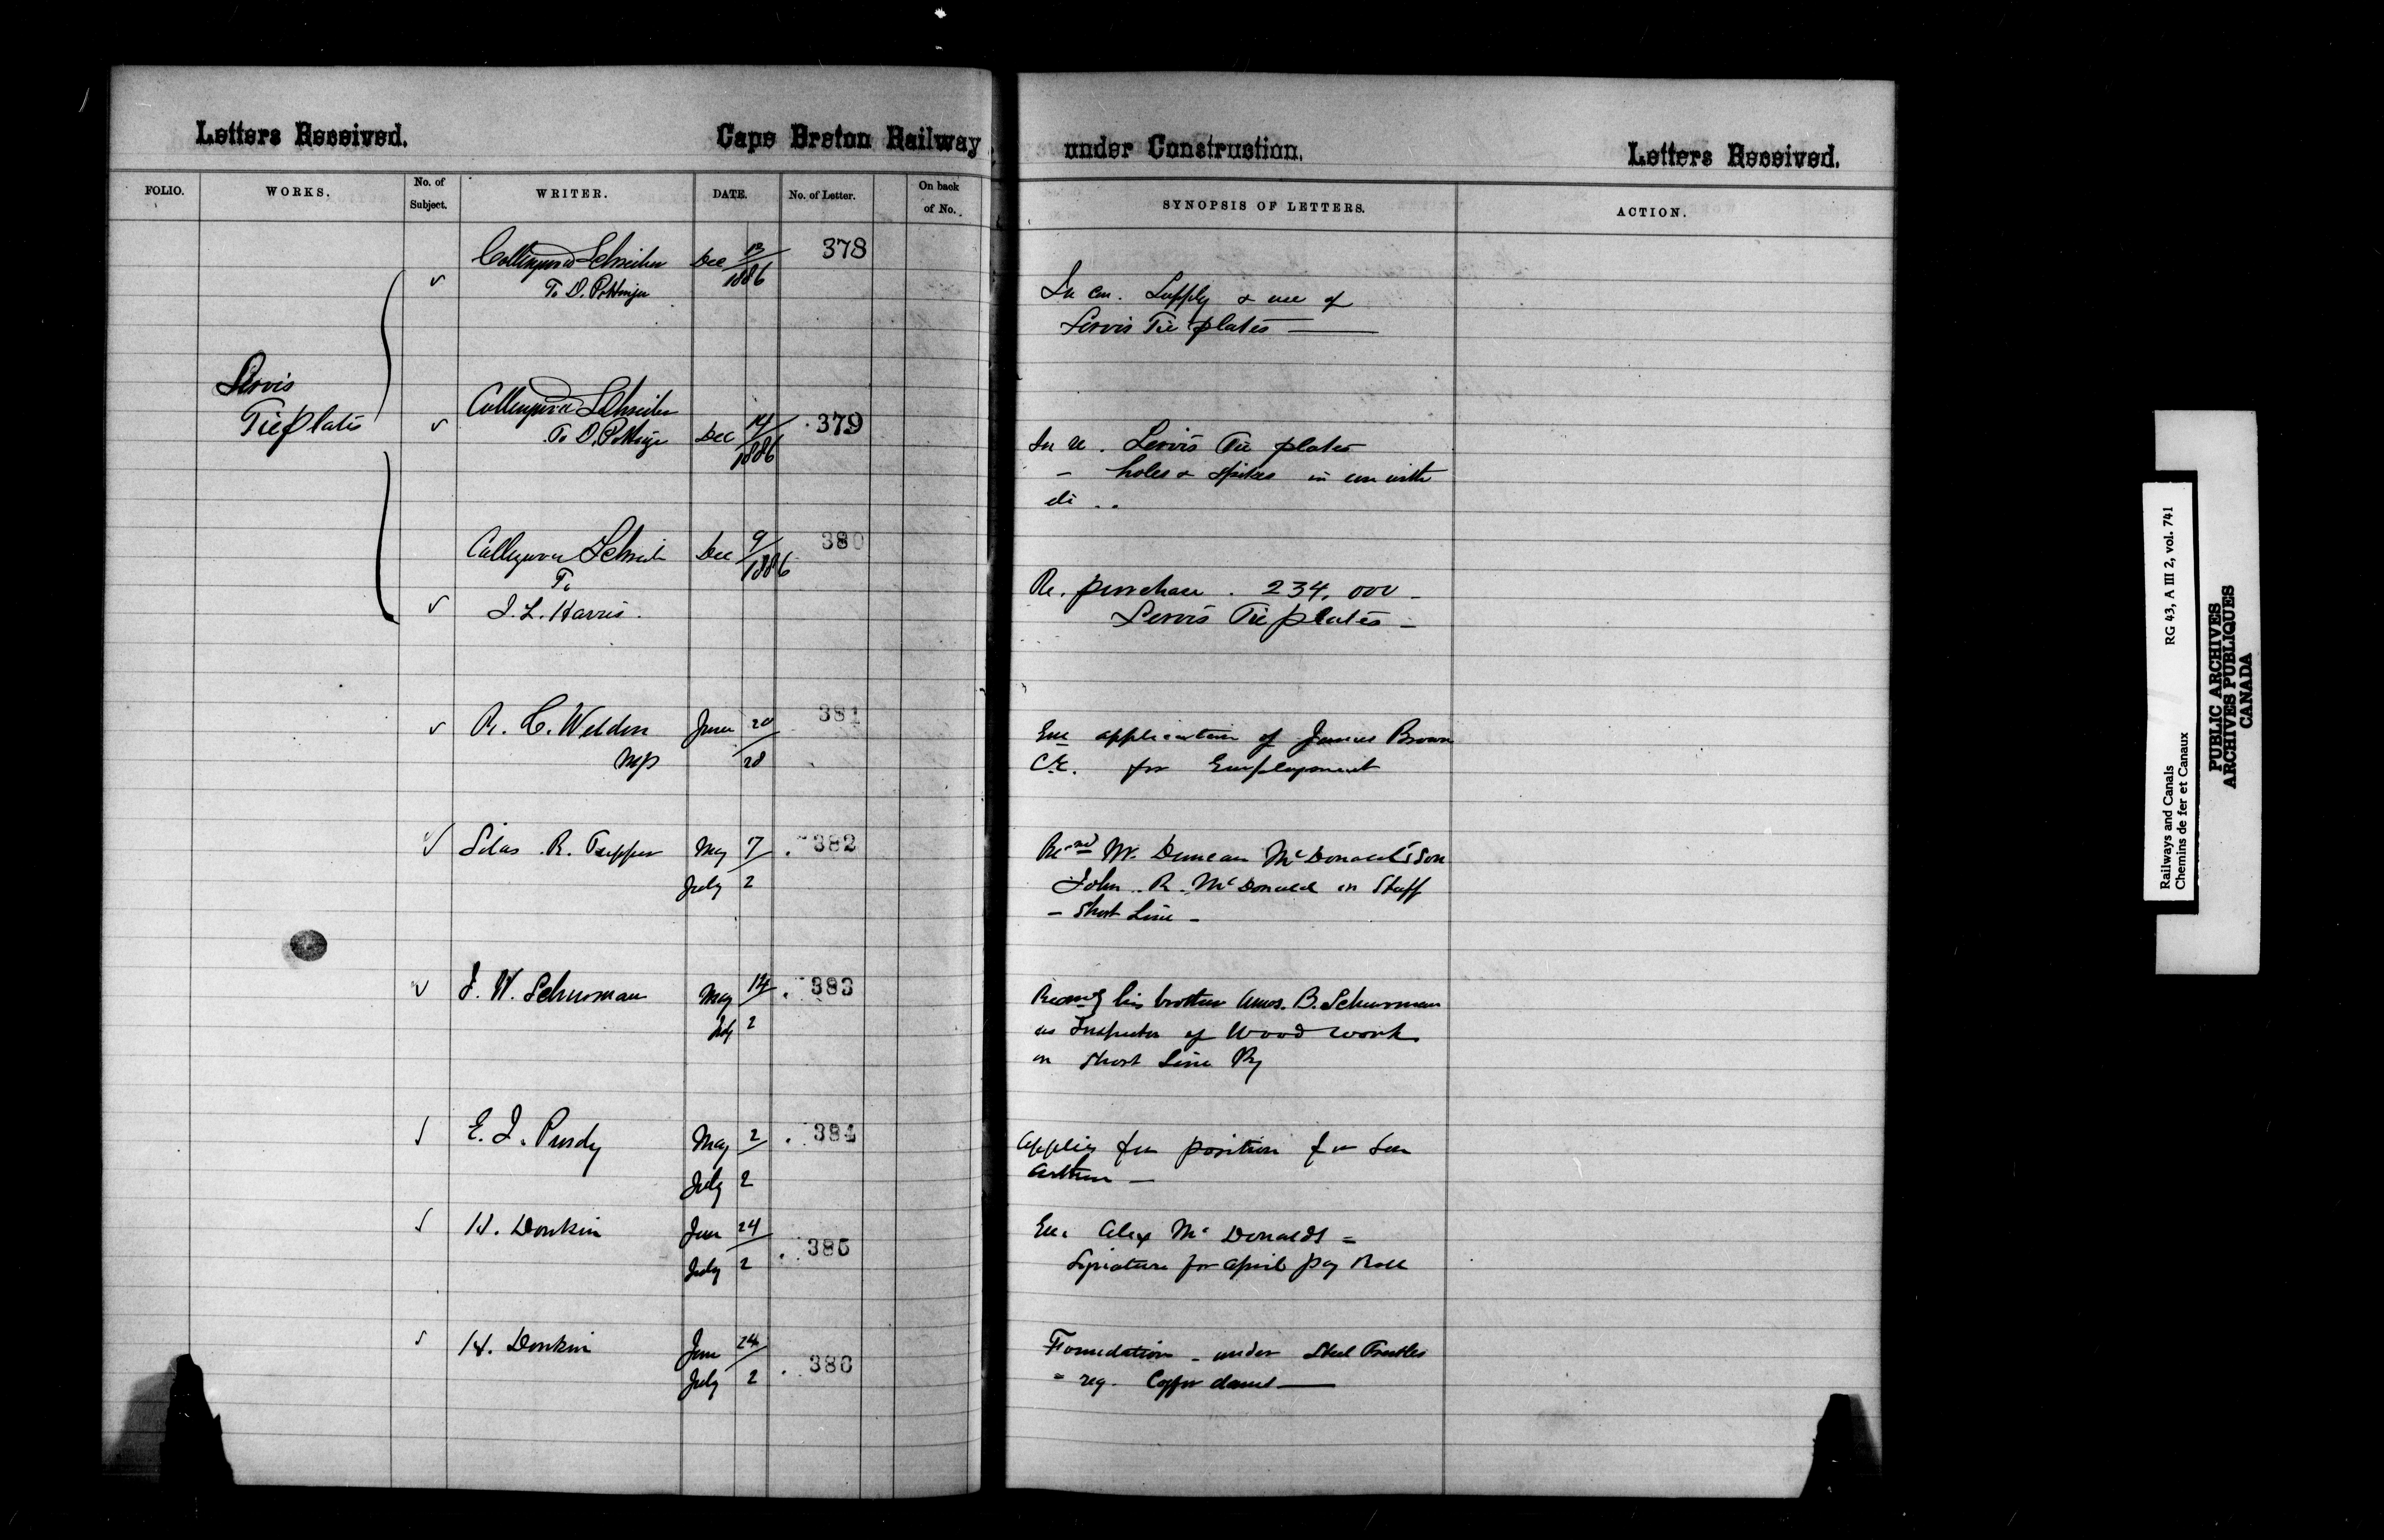 Letters Received.
Cape Breton Railway
under Construction.
Letters Received.
FOLIO.
WORKS.
No. of Subject.
WRITER.
DATE.
No. of Letter.
On back of No.
SYNOPSIS OF LETTERS.
ACTION.
Servis
Tie plates
Collingwood Schreiber
To D. Pottinger
Dec 13/1886
378
In con. Supply & use of
Servis Tie plates —
Collingwood Schreiber
To D. Pottinger
Dec 14/1886
379
In re. Servis Tie plates
- holes & spikes in con with
do ..
Collingwood Schreib
To
J. L. Harris.
Dec 9/1886
380
Re. purchase. 234,000 -
Servis Tie plates -
R. C. Weldon
MP
June 20/28
381
Enc application of James Brown
C.E. for Employment
Silas R. Tupper
May 7
July 2
382
Mr. Duncan McDonald's Son
John R. McDonald on Staff
- Short Line -
J. W. Schurman
May 14
July 2
383
his brother Amos. B. Schurman
as Inspector of Wood work
on Short Line Ry
E. J. Purdy
May 2
July 2
384
Applies for position for Son
Arthur —
H. Donkin
June 24
July 2
385
Enc. Alex McDonalds =
Signature for April Pay Roll
H. Donkin
June 24
July 2
386
Foundation - under Steel Trestles
- reg. Coffer dams —
Railways and Canals
RG 43, A III 2, vol. 741
Chemins de fer et Canaux
PUBLIC ARCHIVES
ARCHIVES PUBLIQUES
CANADA